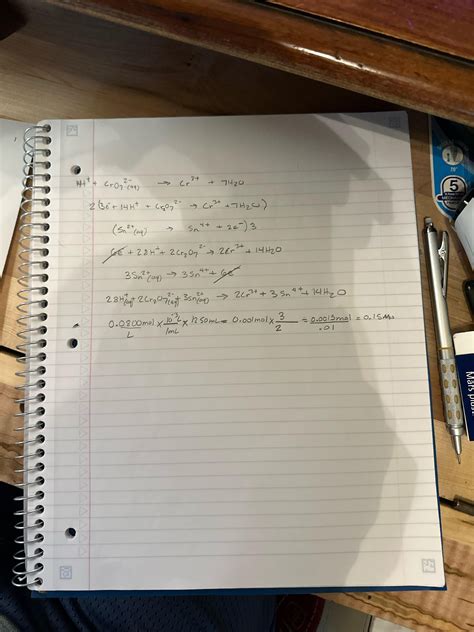 14H⁺ + Cr₂O₇²⁻(aq) → Cr³⁺ + 7H₂O
2(3e⁻ + 14H⁺ + Cr₂O₇²⁻ → Cr³⁺ + 7H₂O)
(Sn²⁺(aq) → Sn⁴⁺ + 2e⁻)3
6e⁻ + 28H⁺ + 2Cr₂O₇²⁻ → 2Cr³⁺ + 14H₂O
3Sn²⁺(aq) → 3Sn⁴⁺ + 6e⁻
28H⁺(aq) + 2Cr₂O₇²⁻(aq) + 3Sn²⁺(aq) → 2Cr³⁺ + 3Sn⁴⁺ + 14H₂O
0.0800mol/L × 10⁻³L/1mL × 12.50mL = 0.001mol × 3/2 = 0.0015mol/.01 = 0.15M
5